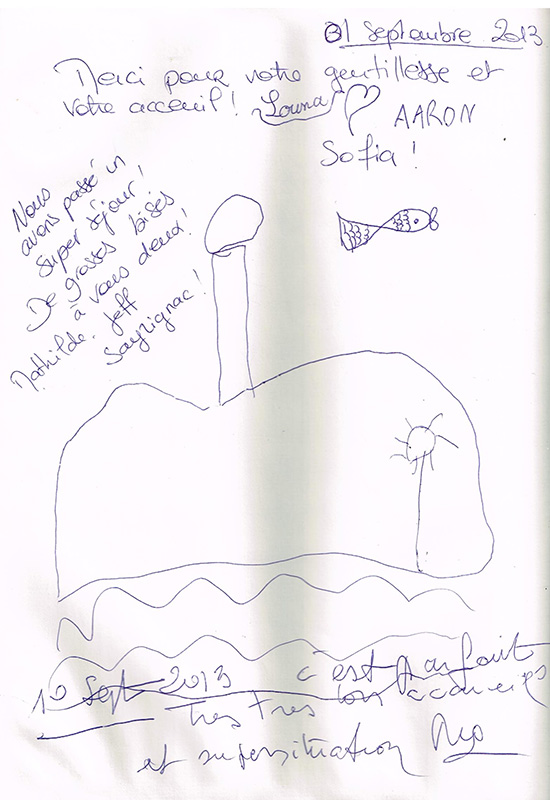 01 Septembre 2013
Merci pour votre gentillesse et
votre acceuil! Louna AARON
Sofia!
Nous
avons passé un
super séjour!
De grosses bises
à vous deux!
Mathilde. Jeff
10 Sept 2013 c'est parfait
Tres Tres bon accueil
et super situation